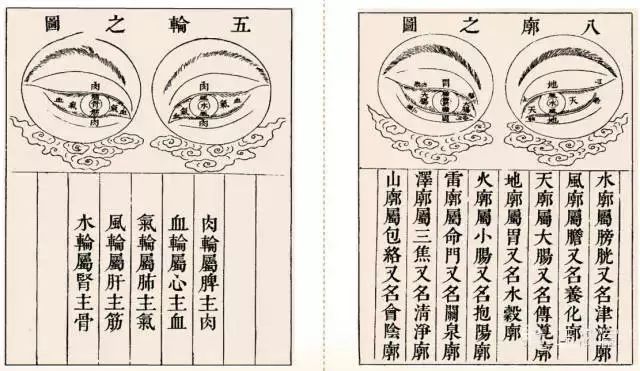 五輪之圖
肉
血
氣
水
氣
血
肉
肉
血
氣
氣
血
肉
肉輪屬脾主肉
血輪屬心主血
氣輪屬肺主氣
風輪屬肝主筋
水輪屬腎主骨
八廓之圖
地
天
水
天
地
大腸
水廓屬膀胱又名津液廓
風廓屬膽又名養化廓
天廓屬大腸又名傳導廓
地廓屬胃又名水穀廓
火廓屬小腸又名抱陽廓
雷廓屬命門又名關泉廓
澤廓屬三焦又名清淨廓
山廓屬包絡又名會陰廓